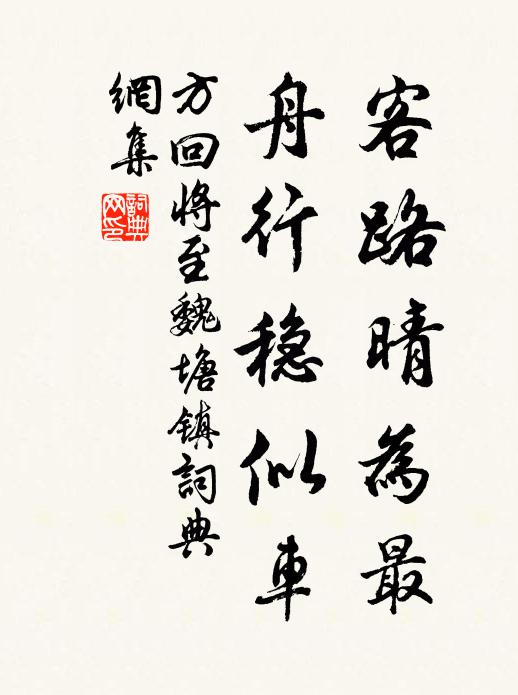 客路晴為最
舟行穩似車
方回將至魏塘鎮詞典
網集
詞典
网印